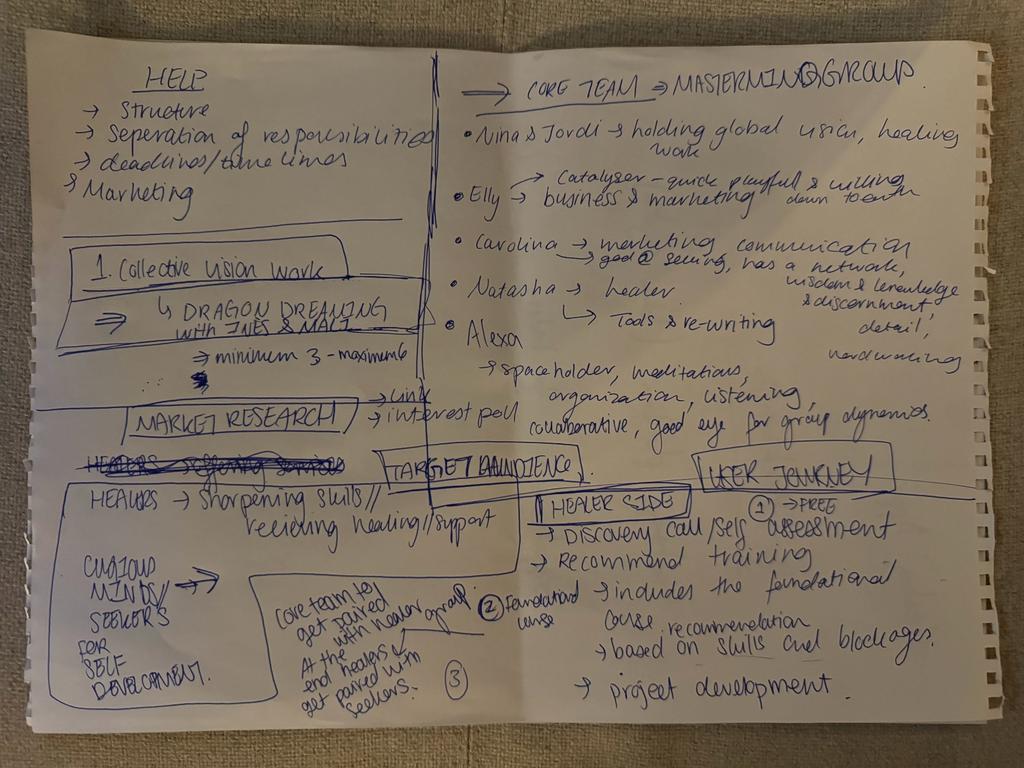 HELP
→ Structure
→ Seperation of responsibilities
→ deadlines/timelines
→ Marketing
1. Collective vision work
↳ DRAGON DREAMING
⇒ with INES & MALI
→ minimum 3 - maximum 6
MARKET RESEARCH
→ Link
→ interest poll
HEALERS offering services
TARGET AUDIENCE
HEALERS → Sharpening skills//
recieving healing//support
CURIOUS
MINDS/ →
SEEKERS
FOR
SELF
DEVELOPMENT.
Core team to
get paired
with healer group.
At the
end healers
get paired with
seekers.
③
→ CORE TEAM ⇒ MASTERMIND GROUP
• Nina & Jordi → holding global vision, healing
work
→ Catalyser - quick playfull & willing
• Elly → business & marketing down to earth
• Carolina → marketing communication
→ good @ selling, has a network,
wisdom & knowledge
& discernment,
detail,
hardworking
• Natasha → healer
↳ Tools & re-writing
• Alexa
→ spaceholder, meditations,
organization, listening,
collaborative, good eye for group dynamics.
USER JOURNEY
HEALER SIDE
① → FREE
→ Discovery call/self assessment
→ Recommend training
② Foundational course
→ includes the foundational
course recommendation
→ based on skills and blockages.
→ project development.